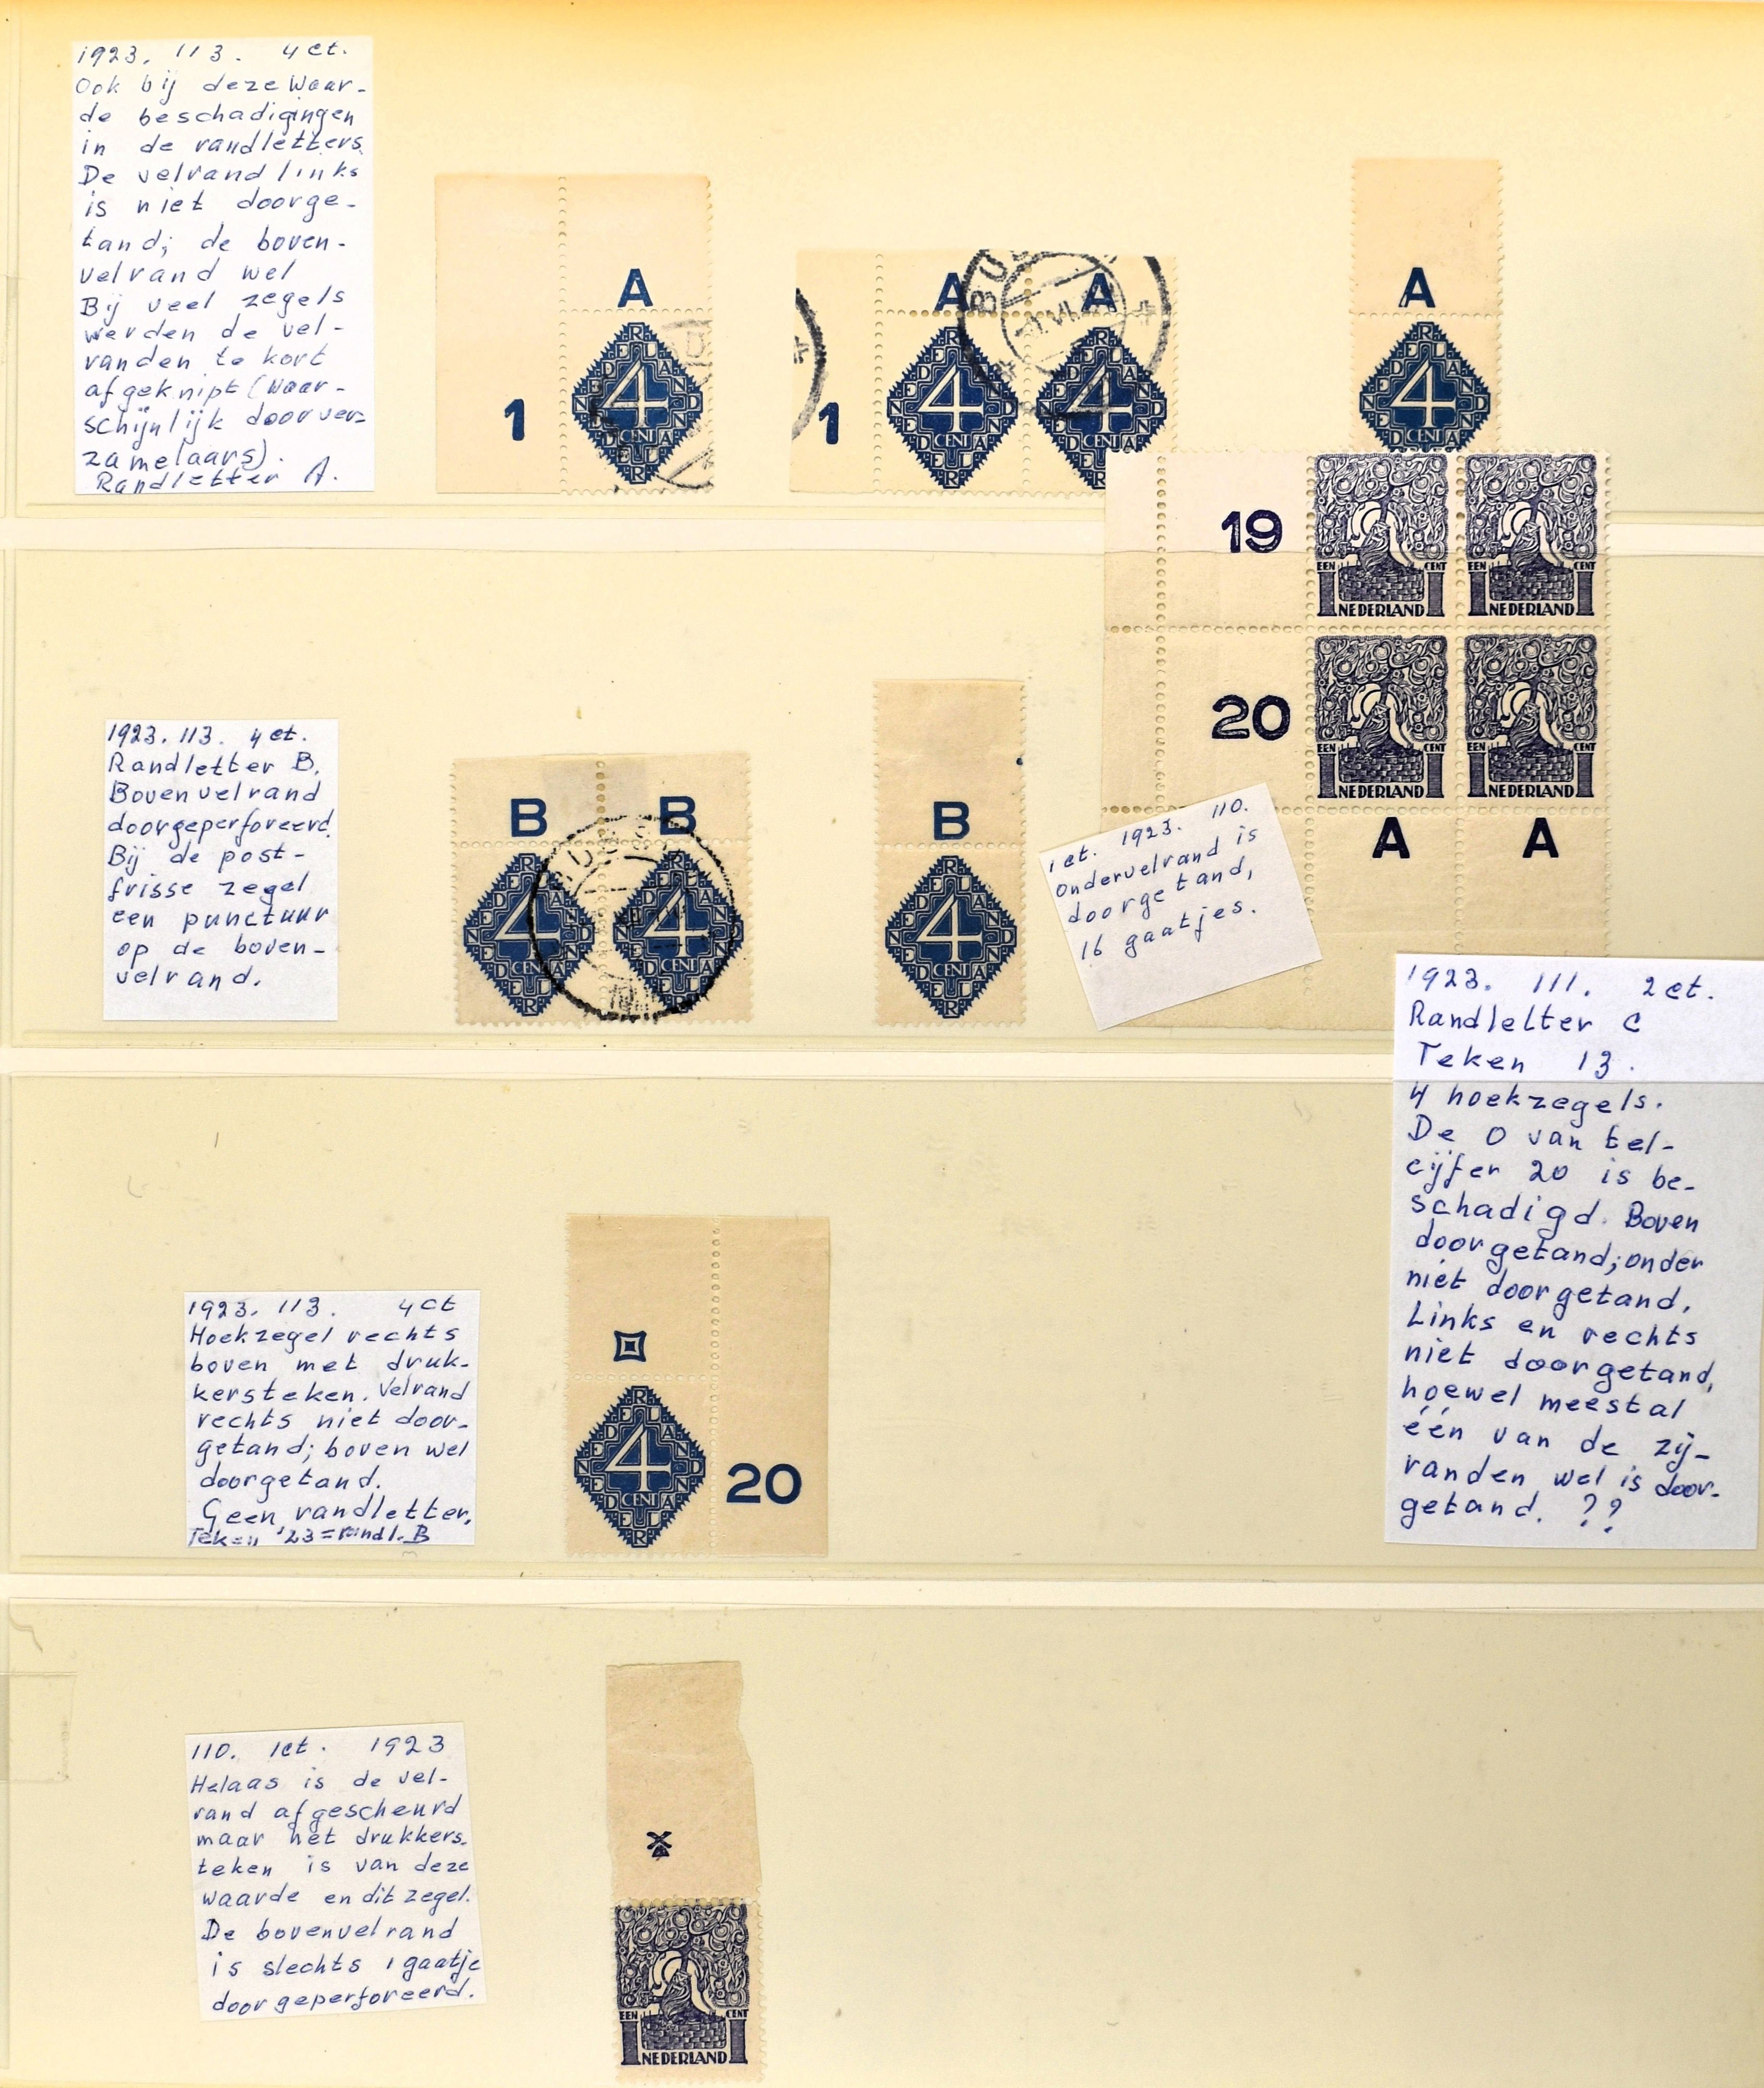 1923. 113. 4 ct.
Ook bij deze Waar-
de beschadigingen
in de randletters.
De velrand links
is niet doorge-
tand; de boven-
velrand wel
Bij veel zegels
werden de vel-
randen te kort
afgeknipt (waar-
schijnlijk door ver-
zamelaars).
Randletter A.
A
1
4
CENT
NEDERLAND
A A
1
4
CENT
NEDERLAND
4
CENT
NEDERLAND
A
4
CENT
NEDERLAND
19
EEN CENT
1 1
NEDERLAND
EEN CENT
1 1
NEDERLAND
20
EEN CENT
1 1
NEDERLAND
EEN CENT
1 1
NEDERLAND
A A
1923. 113. 4 ct.
Randletter B.
Bovenvelrand
doorgeperforeerd.
Bij de post-
frisse zegel
een punctuur
op de boven-
velrand.
B B
4
CENT
NEDERLAND
4
CENT
NEDERLAND
B
4
CENT
NEDERLAND
1 ct. 1923. 110.
ondervelrand is
doorgetand,
16 gaatjes.
1923. 111. 2 ct.
Randletter C
Teken 13.
4 hoekzegels.
De 0 van tel-
cijfer 20 is be-
schadigd. Boven
doorgetand; onder
niet doorgetand.
Links en rechts
niet doorgetand,
hoewel meestal
één van de zij-
randen wel is door-
getand. ??
1923. 113. 4 ct
Hoekzegel rechts
boven met druk-
kersteken. Velrand
rechts niet door-
getand; boven wel
doorgetand.
Geen randletter.
Teken '23 = randl. B
4
CENT
NEDERLAND
20
110. 1ct. 1923
Helaas is de vel-
rand afgescheurd
maar het drukkers-
teken is van deze
waarde en dit zegel.
De bovenvelrand
is slechts 1 gaatje
doorgeperforeerd.
EEN CENT
1 1
NEDERLAND